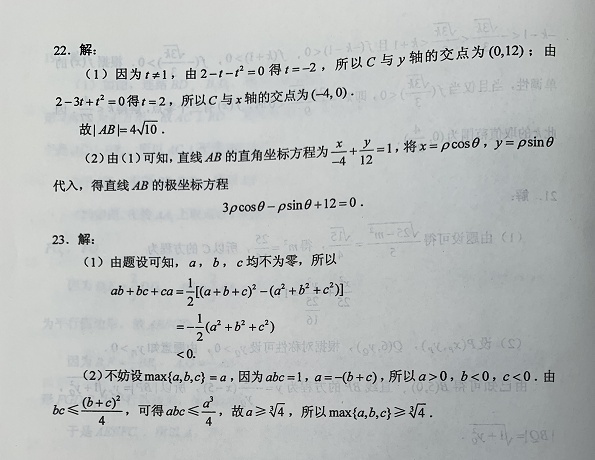 22. 解:
(1) 因为 t≠1, 由 2−t−t²=0 得 t=−2, 所以 C 与 y 轴的交点为 (0,12); 由
2−3t+t²=0 得 t=2, 所以 C 与 x 轴的交点为 (−4,0).
故 |AB|=4√10.
(2) 由 (1) 可知, 直线 AB 的直角坐标方程为 x/−4 + y/12 =1, 将 x=ρcosθ, y=ρsinθ
代入, 得直线 AB 的极坐标方程
3ρcosθ−ρsinθ+12=0.
23. 解:
(1) 由题设可知, a, b, c 均不为零, 所以
ab+bc+ca=1/2[(a+b+c)²−(a²+b²+c²)]
=−1/2(a²+b²+c²)
<0.
(2) 不妨设 max{a,b,c}=a, 因为 abc=1, a=−(b+c), 所以 a>0, b<0, c<0. 由
bc≤(b+c)²/4, 可得 abc≤a³/4, 故 a≥∛4, 所以 max{a,b,c}≥∛4.